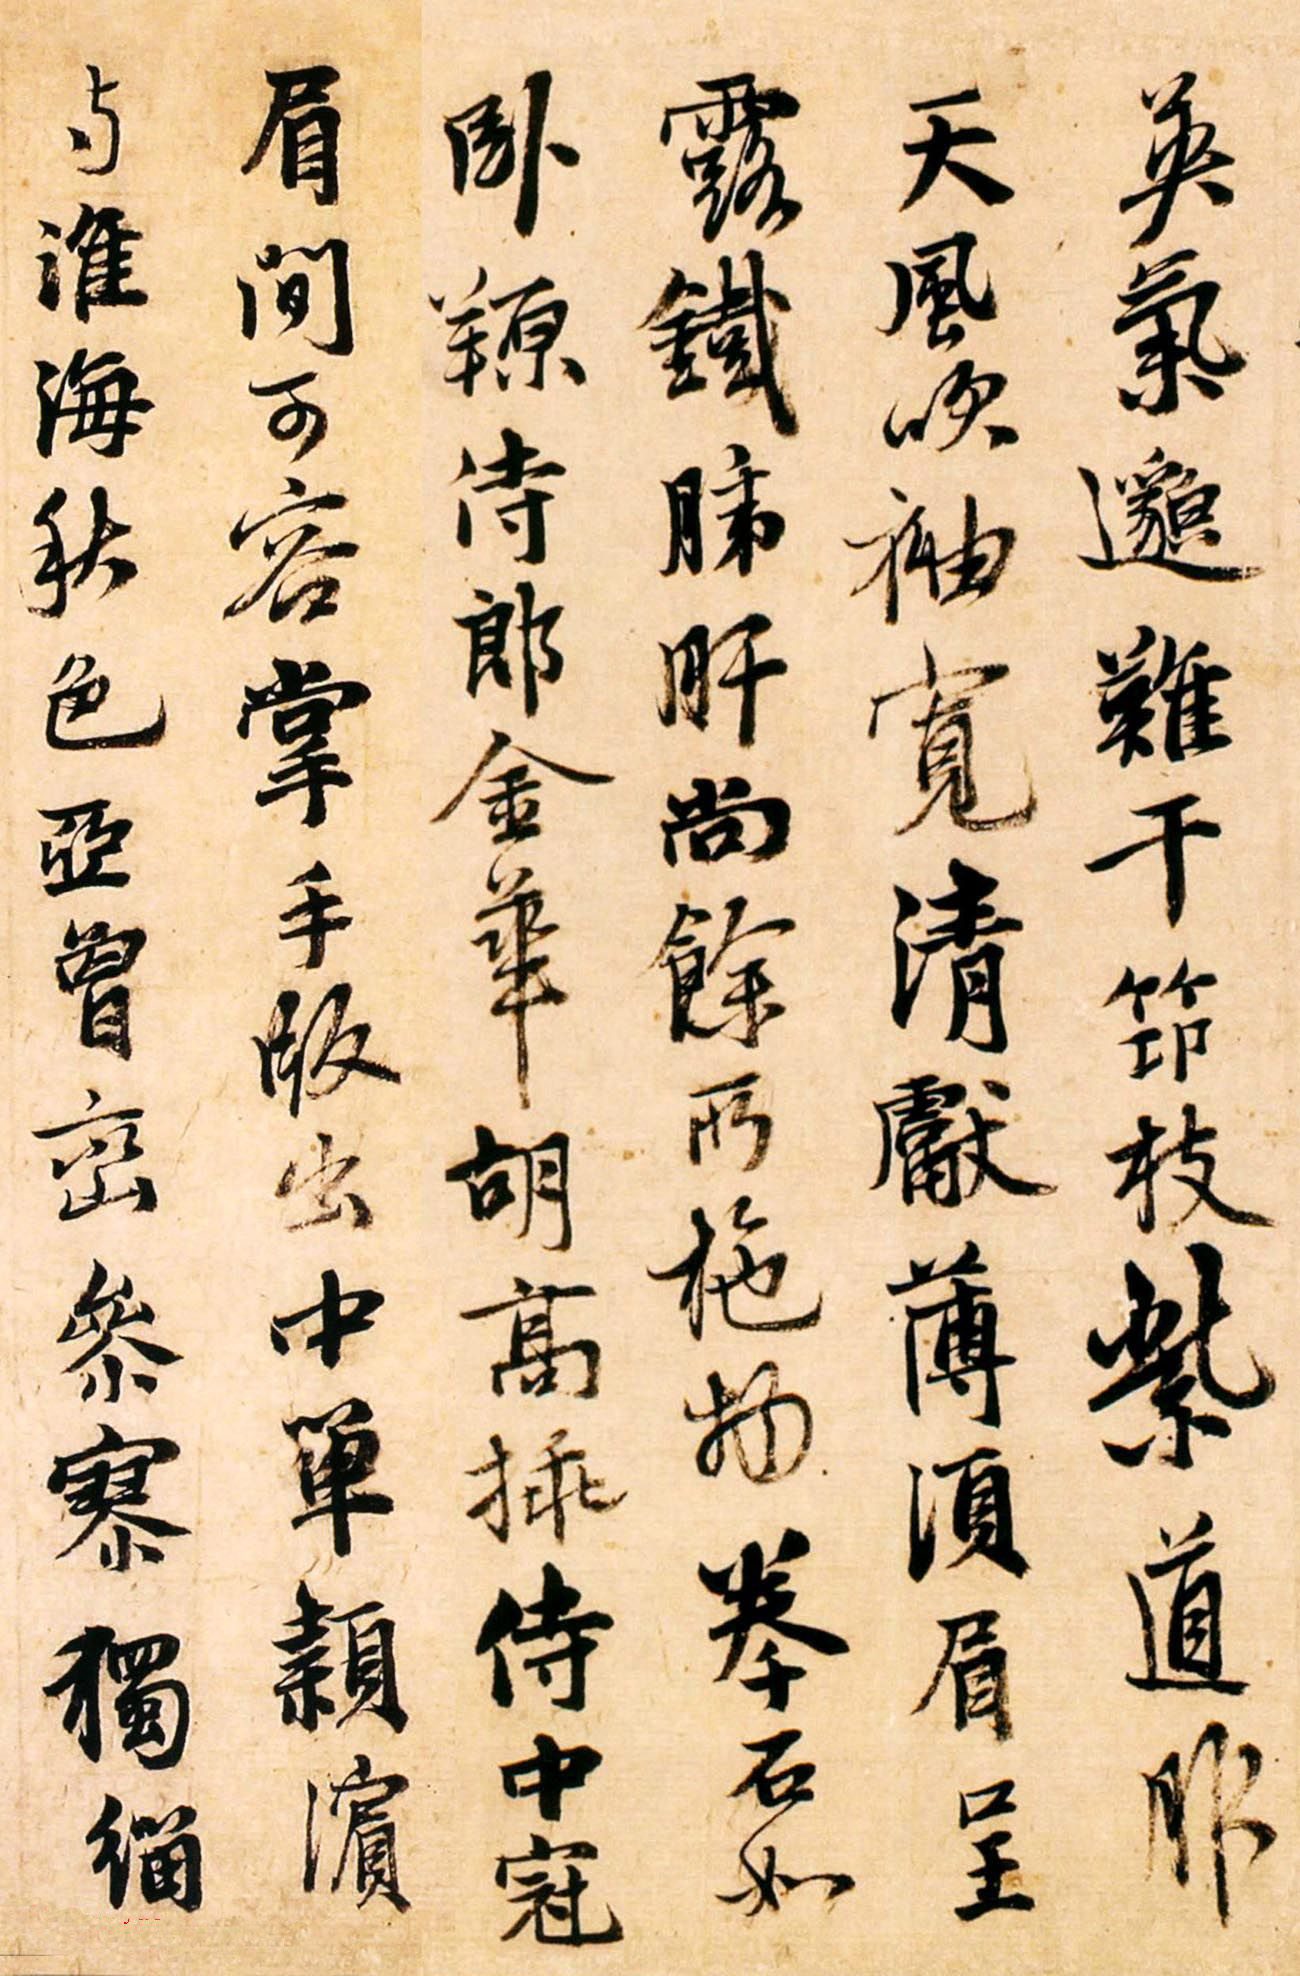 英氣邈難干筇枝紫道服
天風吹袖寬清獻薄湏眉呈
露鐵肺肝尚餘所施物拳石如
卧羱侍郎金華胡高插侍中冠
眉間可容掌手版出中單潁濱
与淮海秋色亞曾峦參寥獨緇